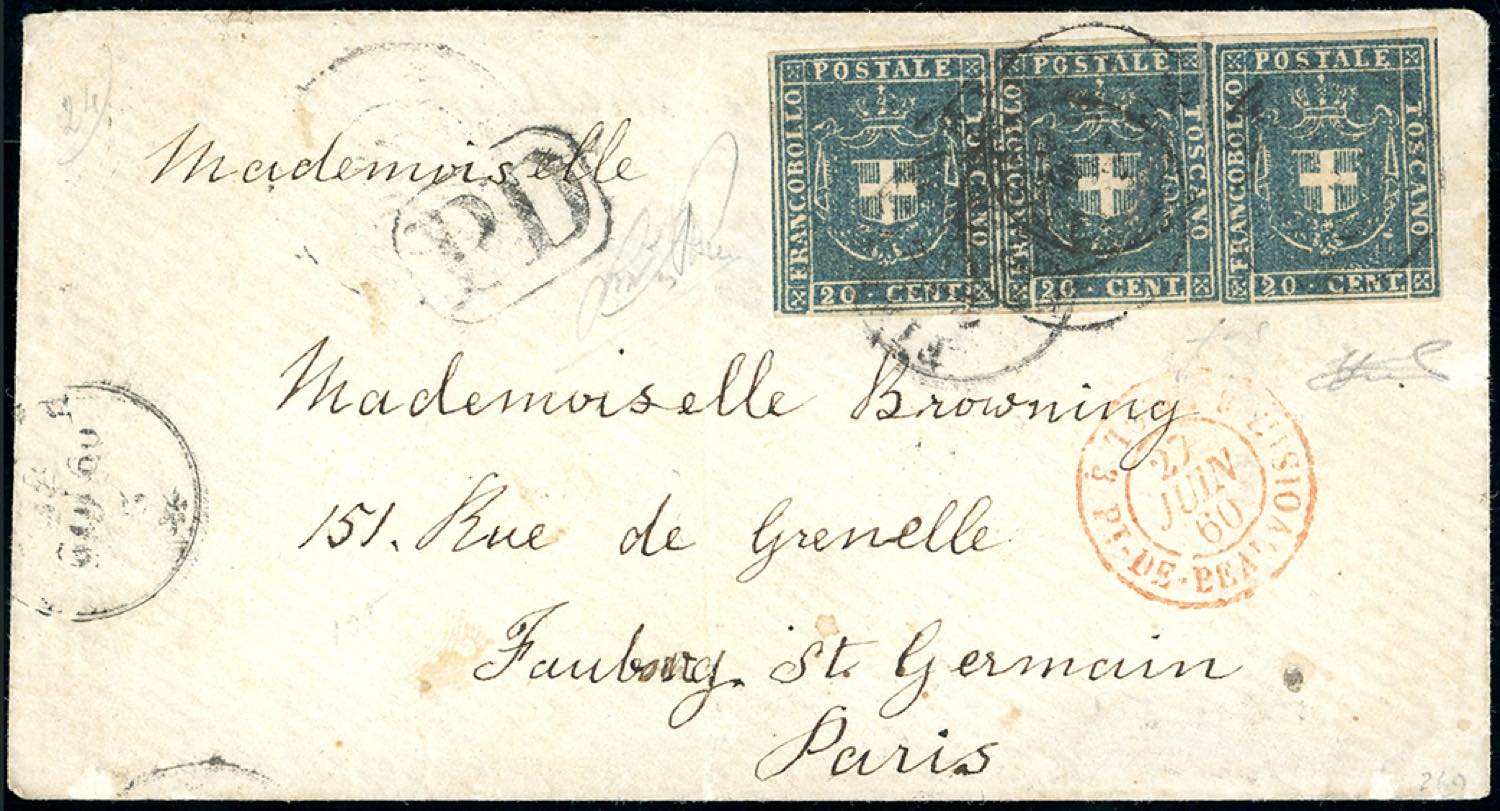 Mademoiselle
P.D
FRANCOBOLLO POSTALE TOSCANO
20 CENT
FRANCOBOLLO POSTALE TOSCANO
20 CENT
FRANCOBOLLO POSTALE TOSCANO
20 CENT.
Mademoiselle Browning
151. Rue de Grenelle
Faubourg. St. Germain
Paris
3 PT-DE-BEAU
27
JUIN
60
60